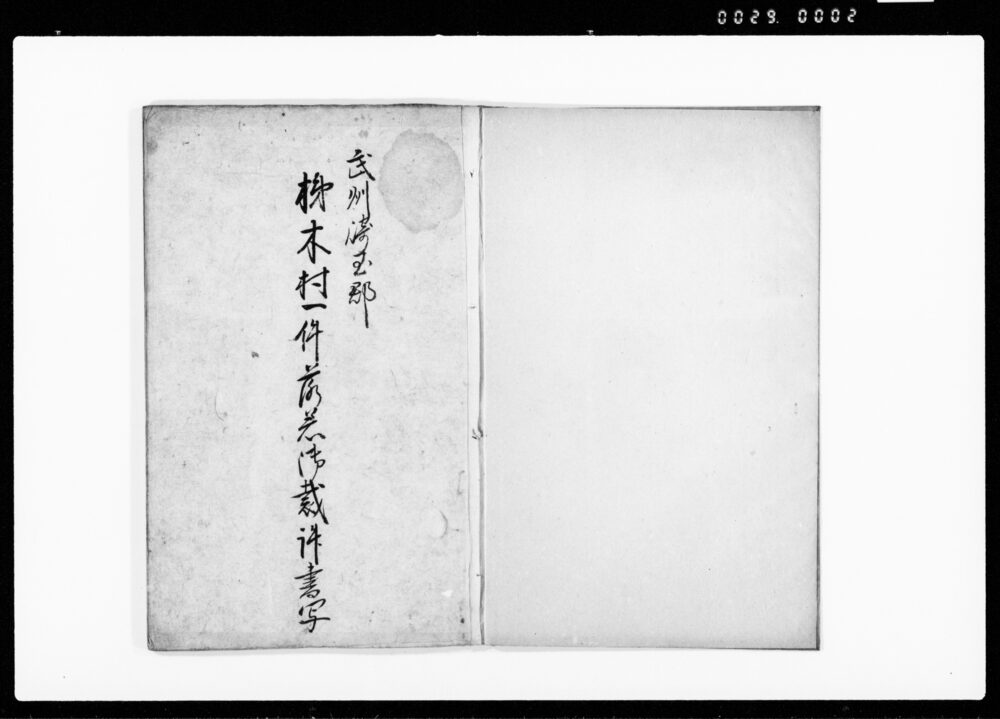 0029. 0002
武州𥔎玉郡
梯木村一件落着御裁許書写